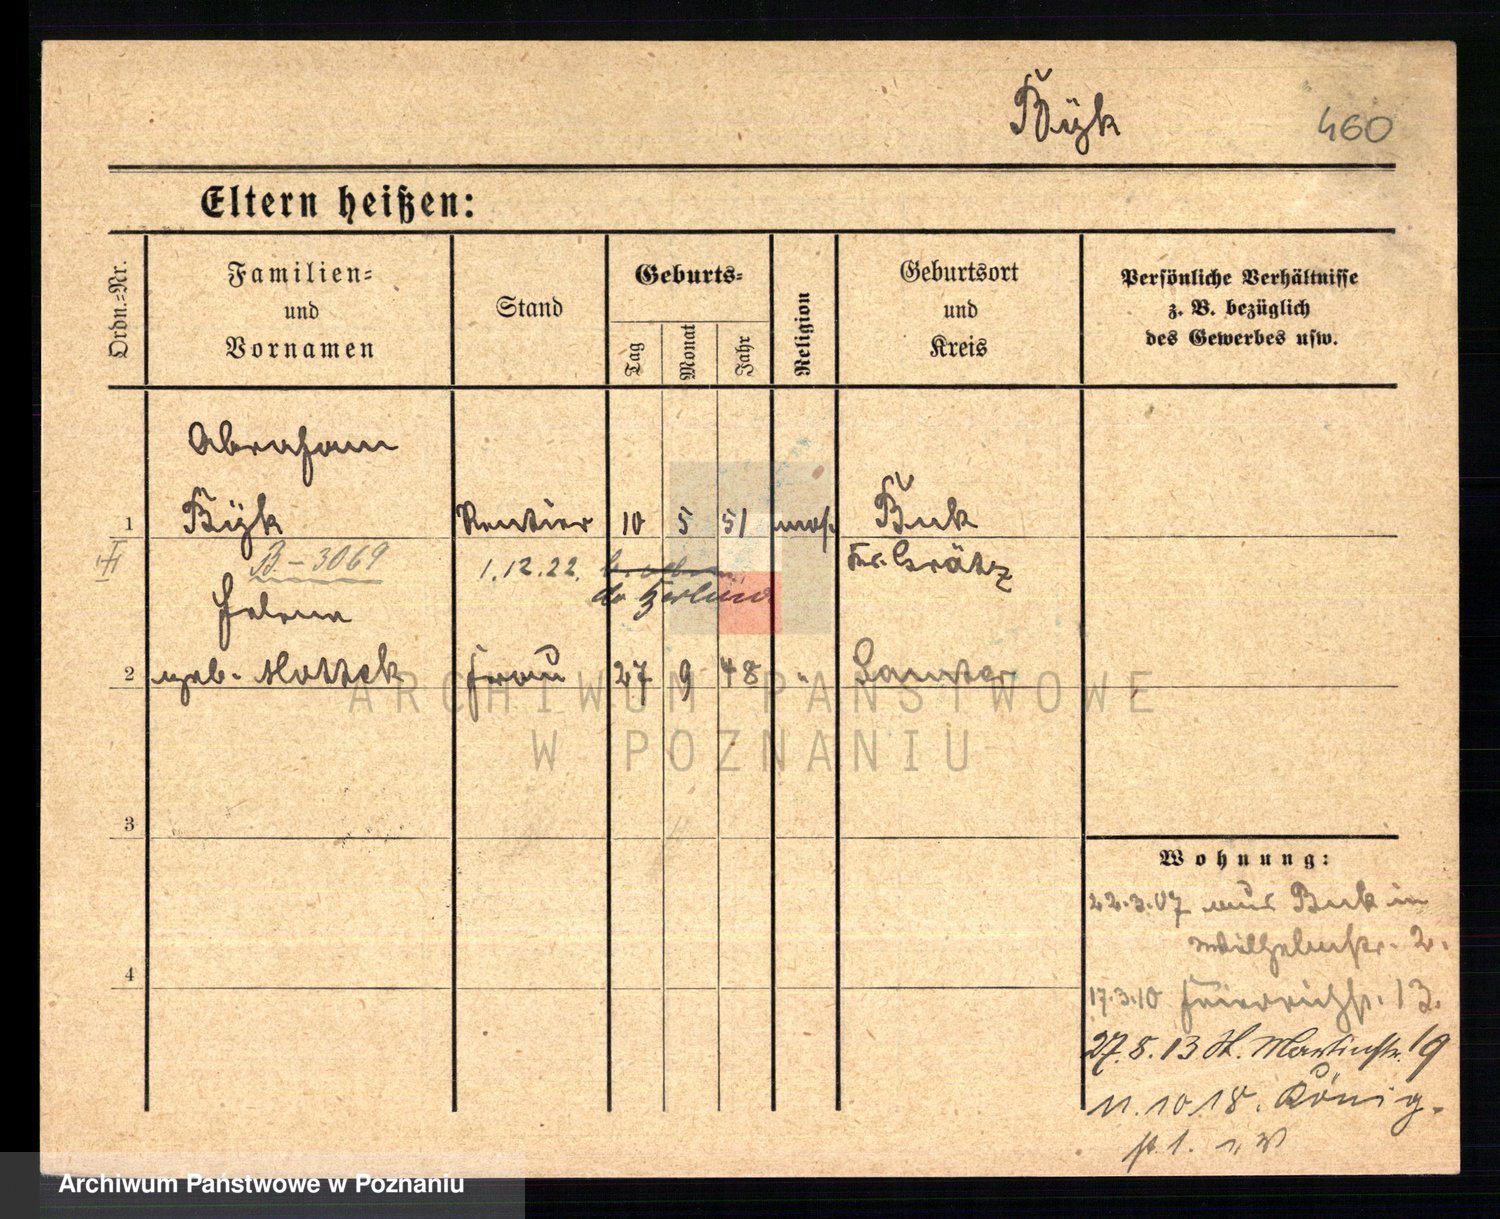 Byk 460
Eltern heißen:
Ordn.=Nr.
Familien=
und
Vornamen
Stand
Geburts=
Tag
Monat
Jahr
Religion
Geburtsort
und
Kreis
Persönliche Verhältnisse
z. B. bezüglich
des Gewerbes usw.
Abraham
1 Byk Rentier 10 5 51 mos. Buk
Kr. Grätz
B - 3069 1.12.22.
do Berlin
Helena
2 geb. Mottek Frau 27 9 48 " Samter
3
4
Wohnung:
22.3.07 aus Buk in
Wilhelmstr. 2.
17.3.10 Friedrichstr. 13.
27.8.13 St. Martinstr. 19
11.10 18. König-
str. 1.
ARCHIWUM PAŃSTWOWE
W POZNANIU
Archiwum Państwowe w Poznaniu